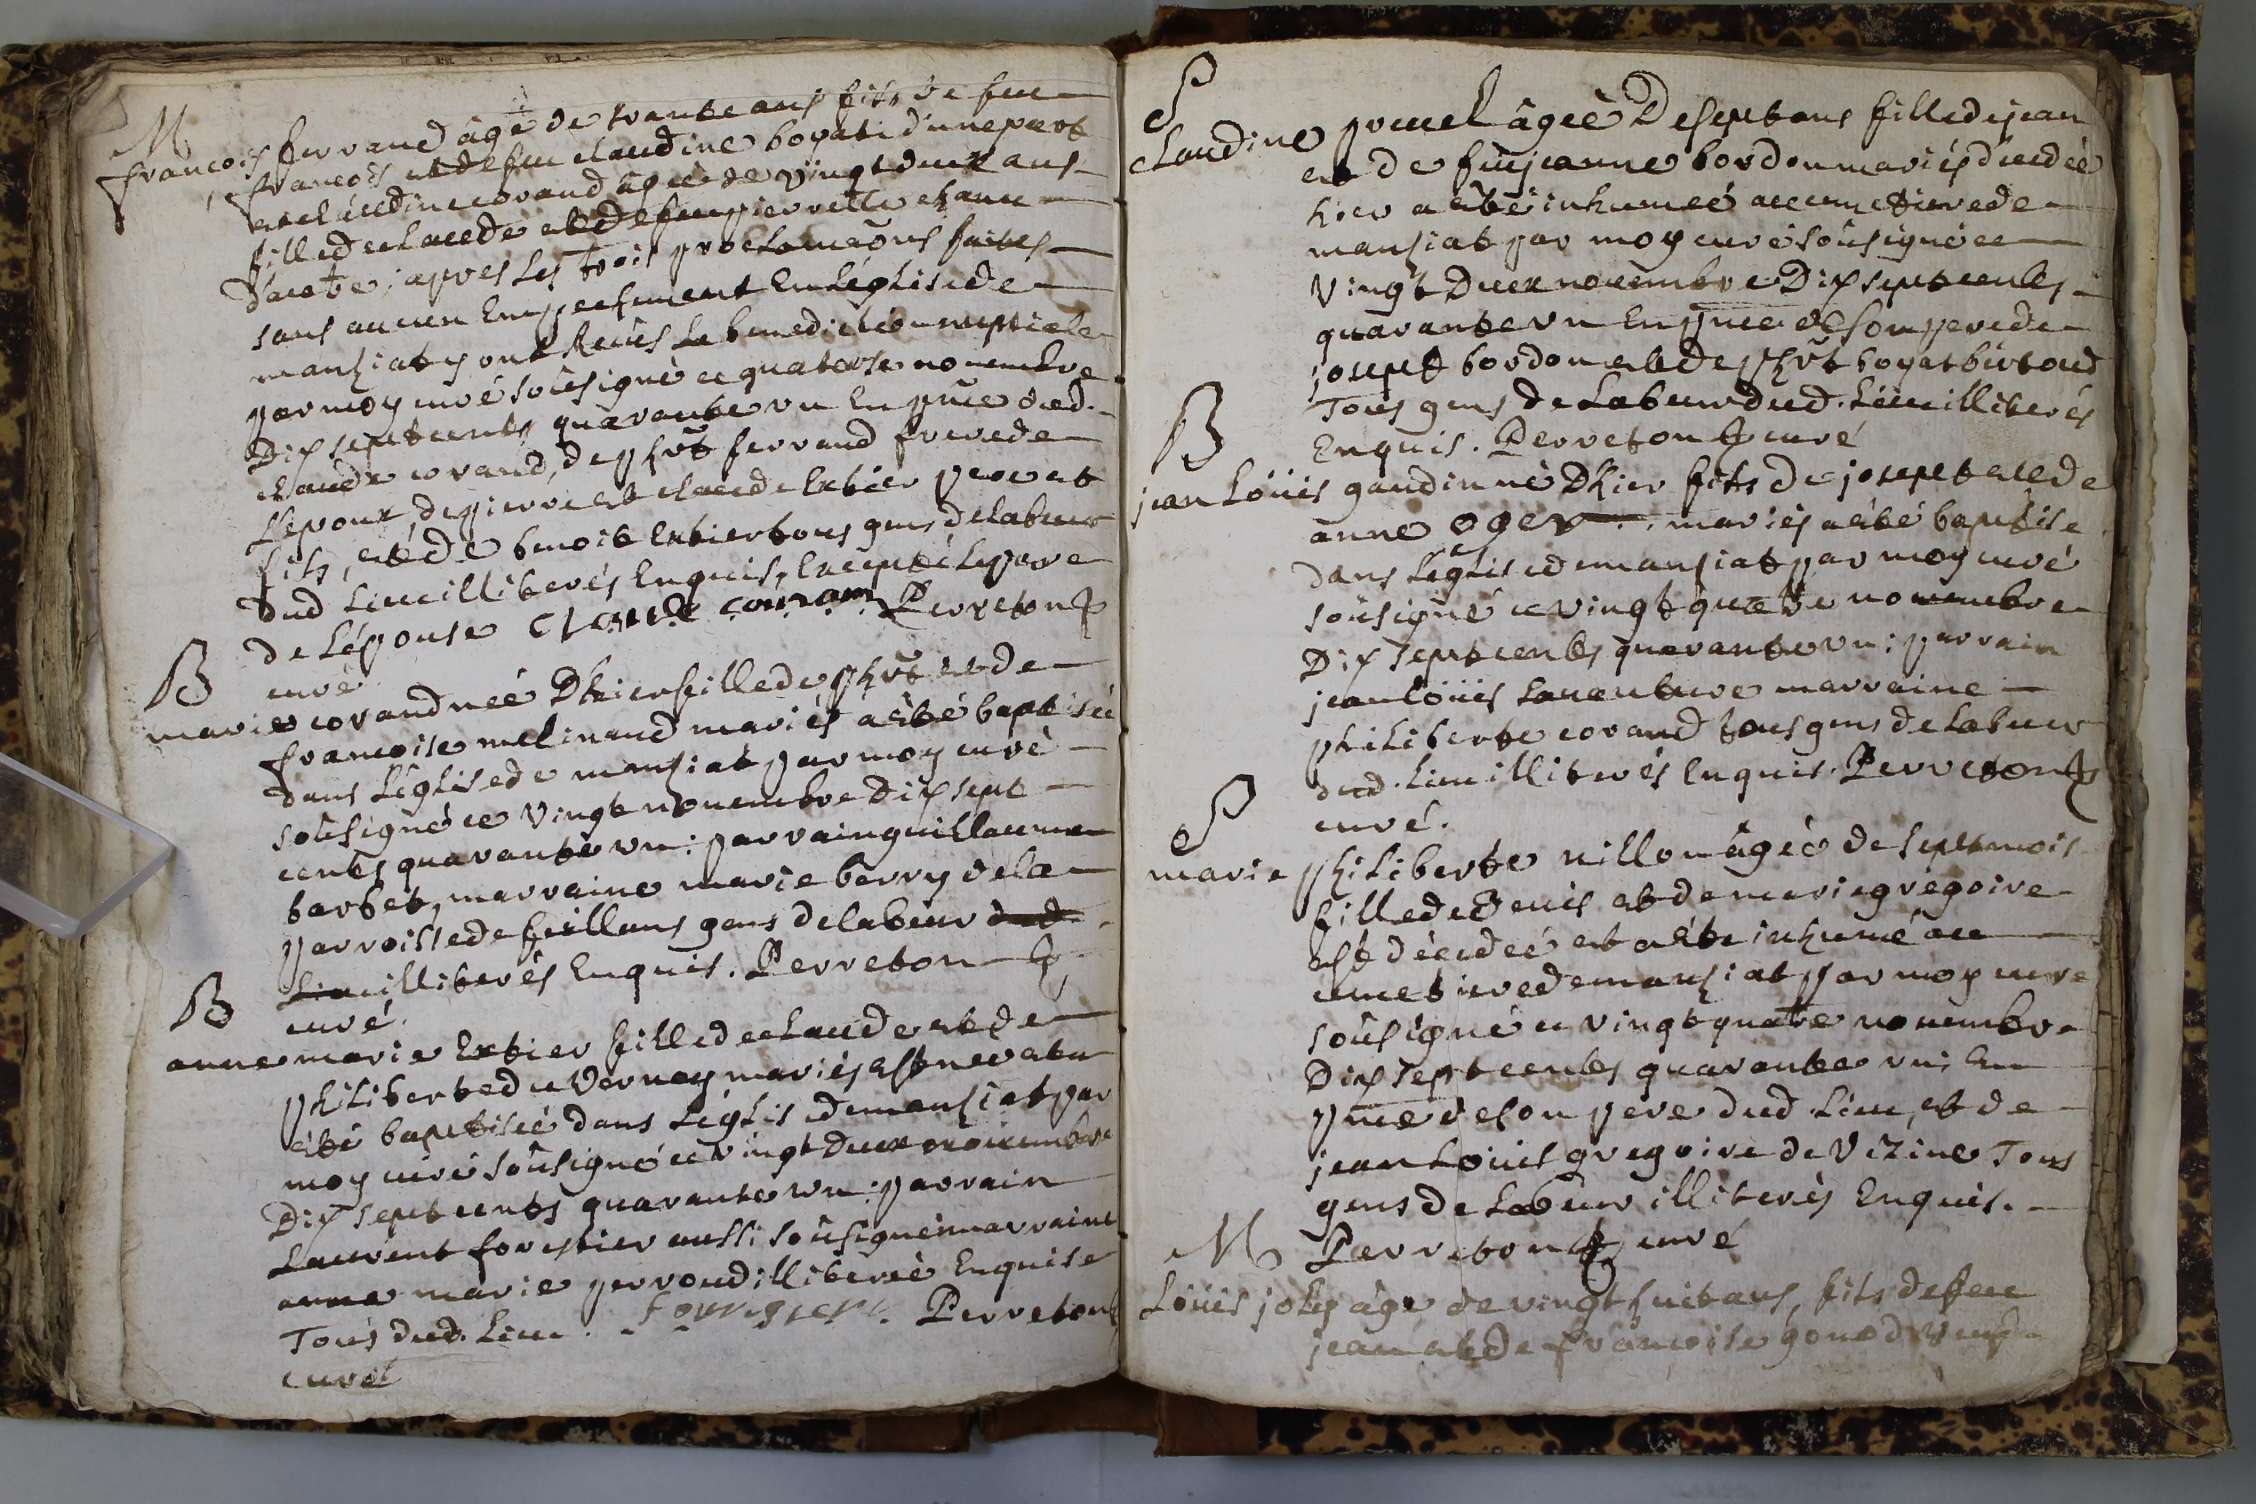 M
francois ferrand âgé de trante ans fils de feu
francois et de feu claudine boyat d'une part
et claudine corand âgée de vingt deux ans
fille de claude et de feu pierrette chanu
d'autre, apres les trois proclamaõns faites
sans aucun Empeschement En L'église de
manziat y ont Reçus La benediction nuptiale
par moy curé soûsigné ce quatorse novembre
Dix sept cents quarante vn En pñce dud.
claude corand, de phrt ferrand frere de
L'epoux, de pierre et claude Extier pere et
fils, et de benoit Extier tous gens de labeur
dud Lieu illiterés Enquis, Excepté le pere
de L'épouse claude couram Perreton
curé
B
marie corand née D'hier fille de phrt et de
francoise melinand mariés a été baptisée
dans L'église de manziat par moy curé
soûsigné ce vingt novembre Dix sept
cents quarante vn : parrain guillaume
barbet, marraine marie berry de la
parroisse de feillans gens de labeur dud.
Lieu illiterés Enquis. Perreton
curé.
B
anne marie Extier fille de claude et de
philiberte du Vernay mariés est née et a
été baptisée dans L'église de manziat par
moy curé soûsigné ce vingt deux novembre
Dix sept cents quarante vn : parrain
Laurent forestier aussi soûsigné marraine
anne marie perroud illiterée Enquise
Tous dud. Lieu. forestier. Perreton
curé
S
claudine pruel âgée De sept ans fille de jean
et de feu jeanne bordon mariés décedée
hier a été inhumée au cimetiere de
manziat par moy curé soûsigné ce
Vingt Deux novembre Dix sept cents
quarante vn En pñce de son pere de
joseph bordon et de phrt boyat birtoud
Tous gens de Labeur dud. Lieu illiterés
Enquis. Perreton curé
B
jean Loüis gaudin né D'hier fils de joseph et de
anne oger mariés a été baptisé
dans L'église de manziat par moy curé
soûsigné ce vingt quatre novembre
Dix sept cents quarante vn : parrain
jean loüis Laventure marraine
philiberte corand tous gens de labeur
dud. Lieu illiterés Enquis. Perreton
curé.
S
marie philiberte nillon âgée de sept mois
fille de Denis et de marie gregoire
est décedée et a été inhumé au
cimetiere de manziat par moy curé
soûsigné ce vingt quatre novembre
Dix sept cents quarante vn ; En
pñce de son pere dud. Lieu, et de
jean Loüis gregoire de Vezine Tous
gens de Labeur illiterés Enquis.
Perreton curé
M
Loüis joly âgé de vingt huit ans, fils de feu
jean et de francoise gonod